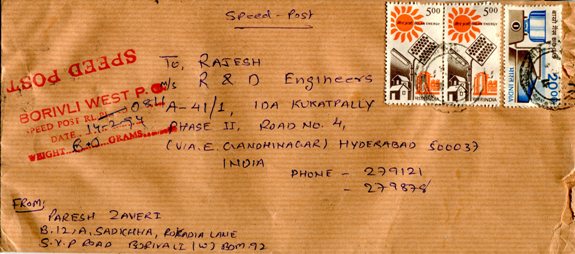 Speed-Post
To, RAJESH
M/s R & D Engineers
A-41/1, IDA KUKATPALLY
PHASE II, ROAD No. 4,
(VIA.E. GANDHINAGAR) HYDERABAD 500037
INDIA
PHONE - 279121
- 279878
FROM:
PARESH ZAVERI
B.12/A, SADKHHA, ROKADIA LANE
S.V.P ROAD BORIVALI (W) BOM.92
SPEED POST
BORIVLI WEST P.O.
SPEED POST RL 084
DATE 14.2.94
WEIGHT GRAMS
5.00
5.00
2.00